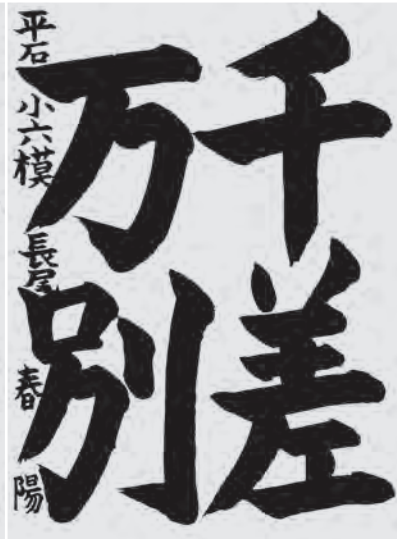 千差
万別
平石小六模 長尾春陽